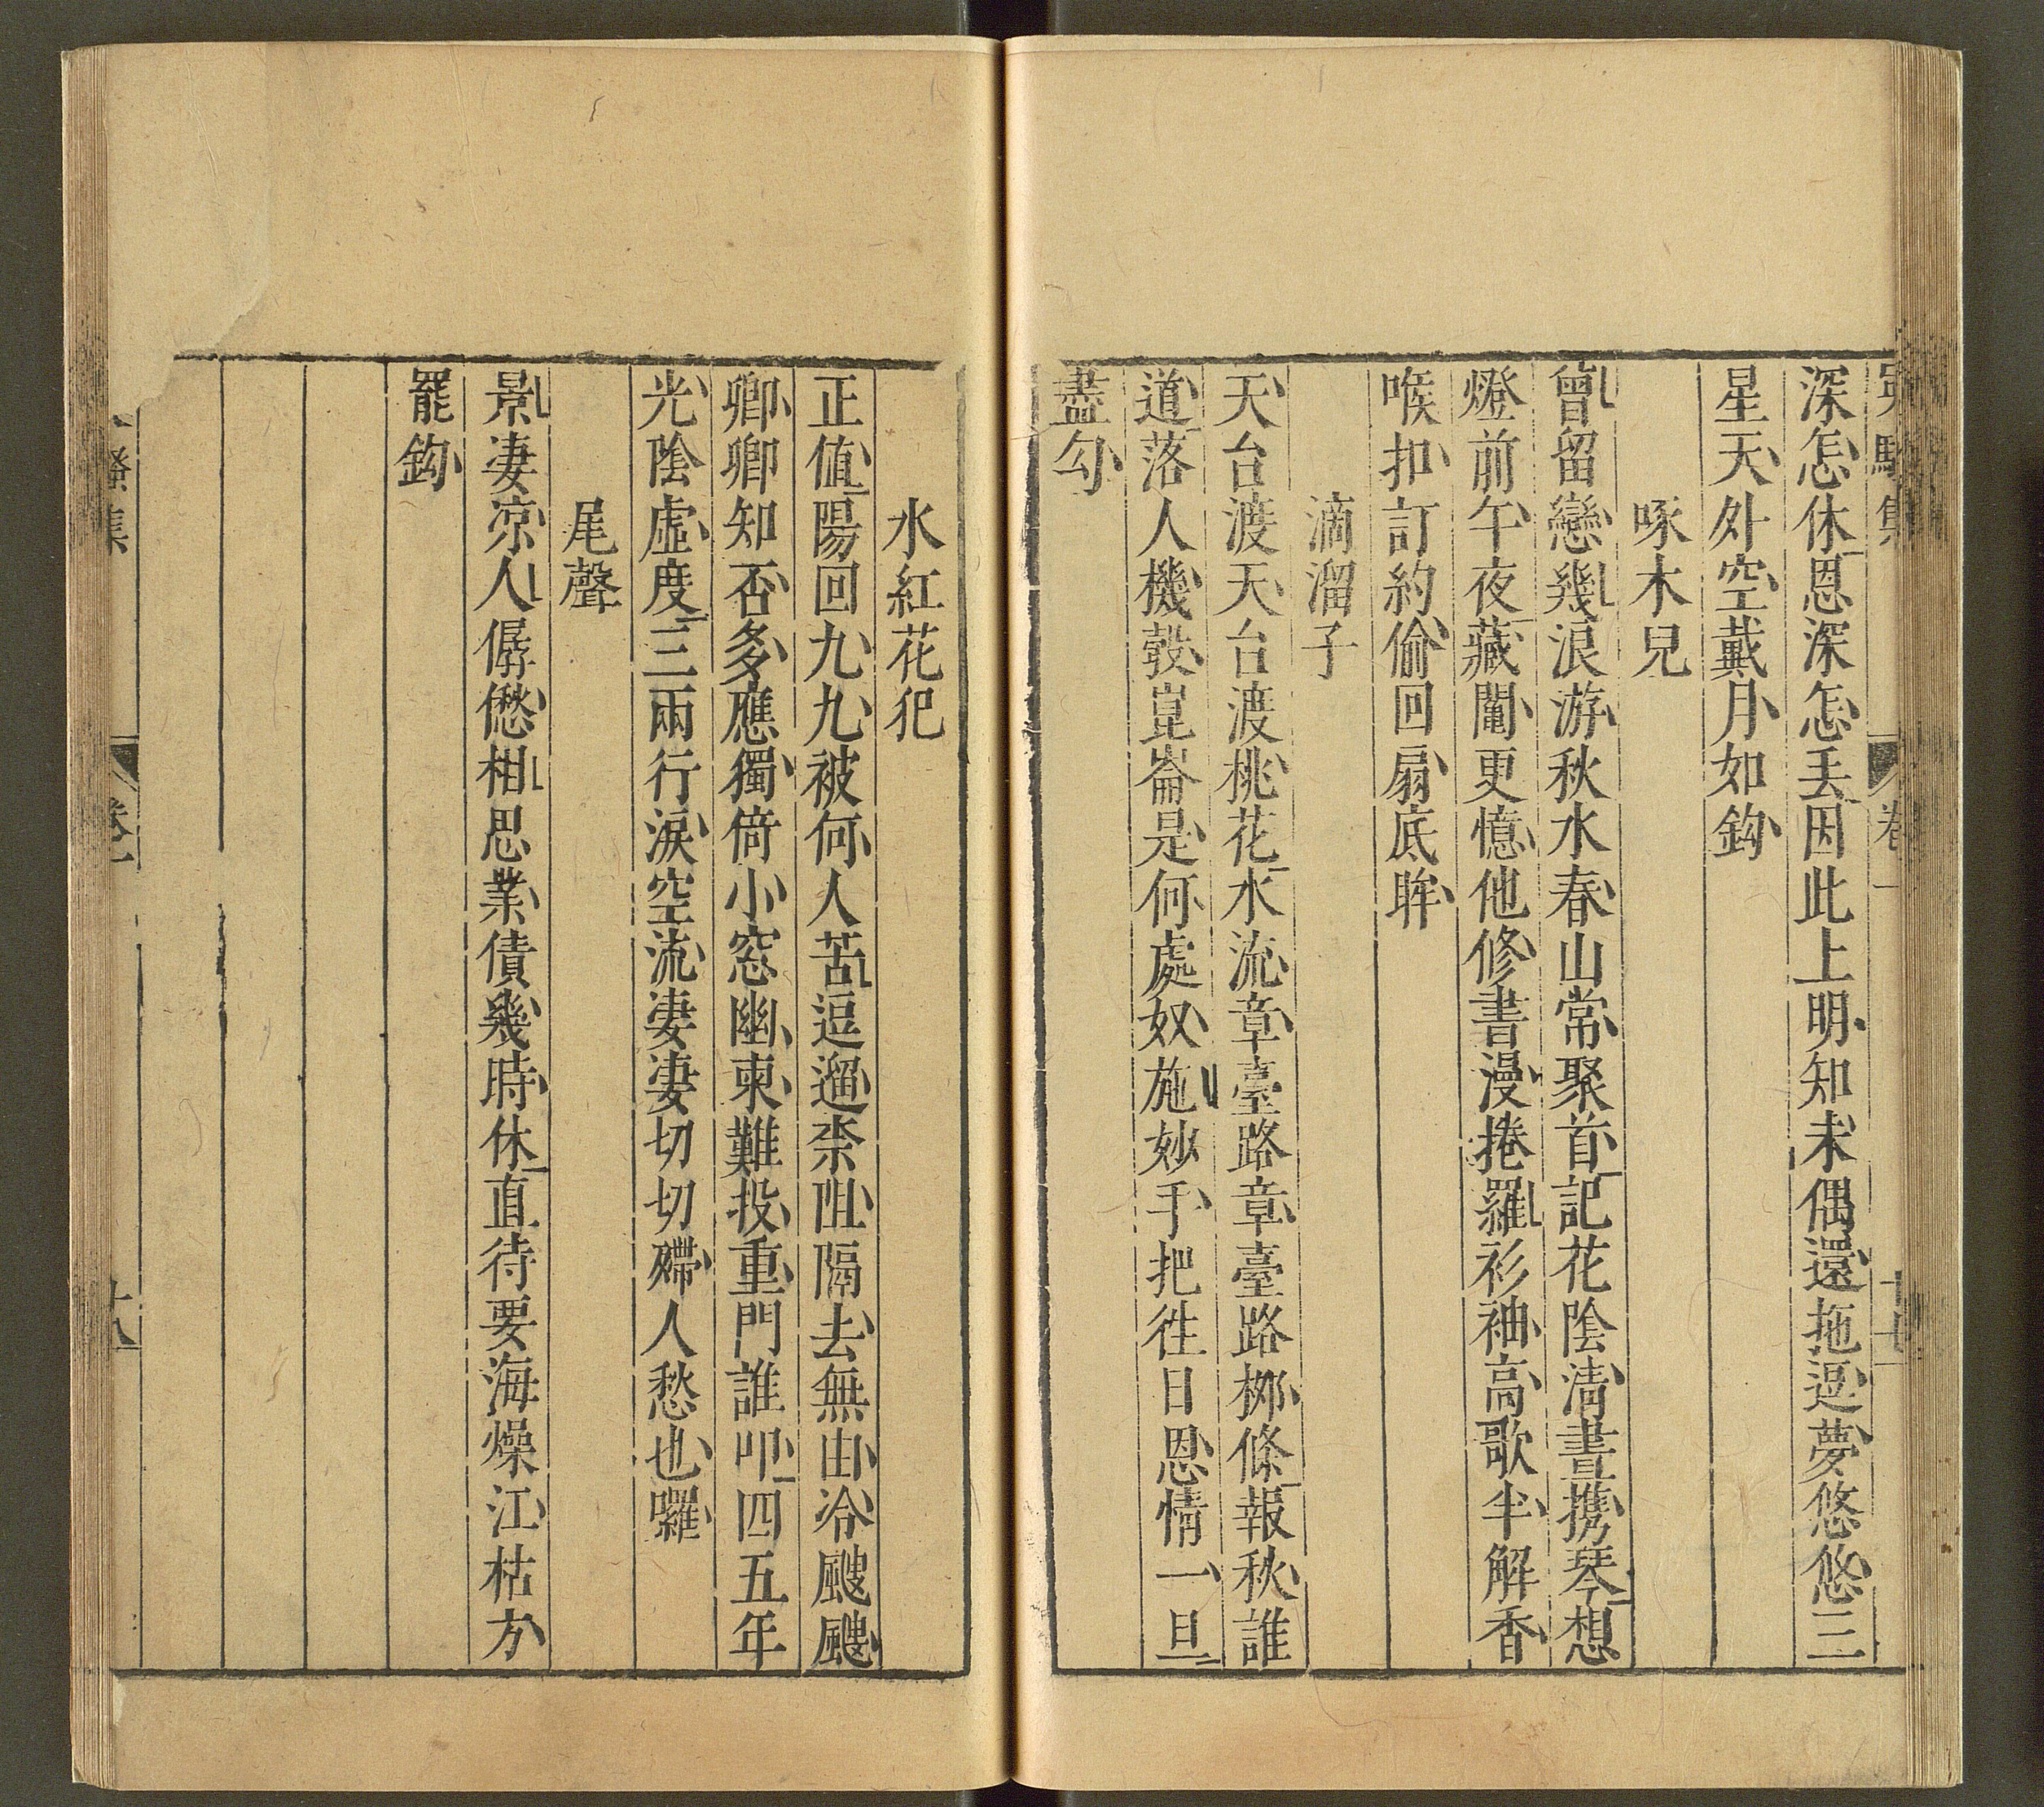 深怎休恩深怎丢因此上明知未偶還拖逗夢悠悠三
星天外空戴月如鈎
啄木兒
曾留戀幾浪游秋水春山常聚首記花陰淸晝携琴想
燈前午夜藏鬮更憶他修書漫捲羅衫袖高歌半解香
喉扣訂約偷回扇底眸
滴溜子
天台渡天台渡桃花水流章臺路章臺路桞條報秋誰
道落人機彀崑崙是何處奴施妙手把徃日恩情一旦
盡勾
卷一
十七
水紅花犯
正值陽回九九被何人苦逗遛柰阻隔去無由冷颼颼
卿卿知否多應獨倚小窓幽柬難投重門誰叩四五年
光陰虛度三兩行淚空流凄凄切切殢人愁也囉
尾聲
景凄凉人僝僽相思業債幾時休直待要海燥江枯方
罷鈎
集
卷一
十八